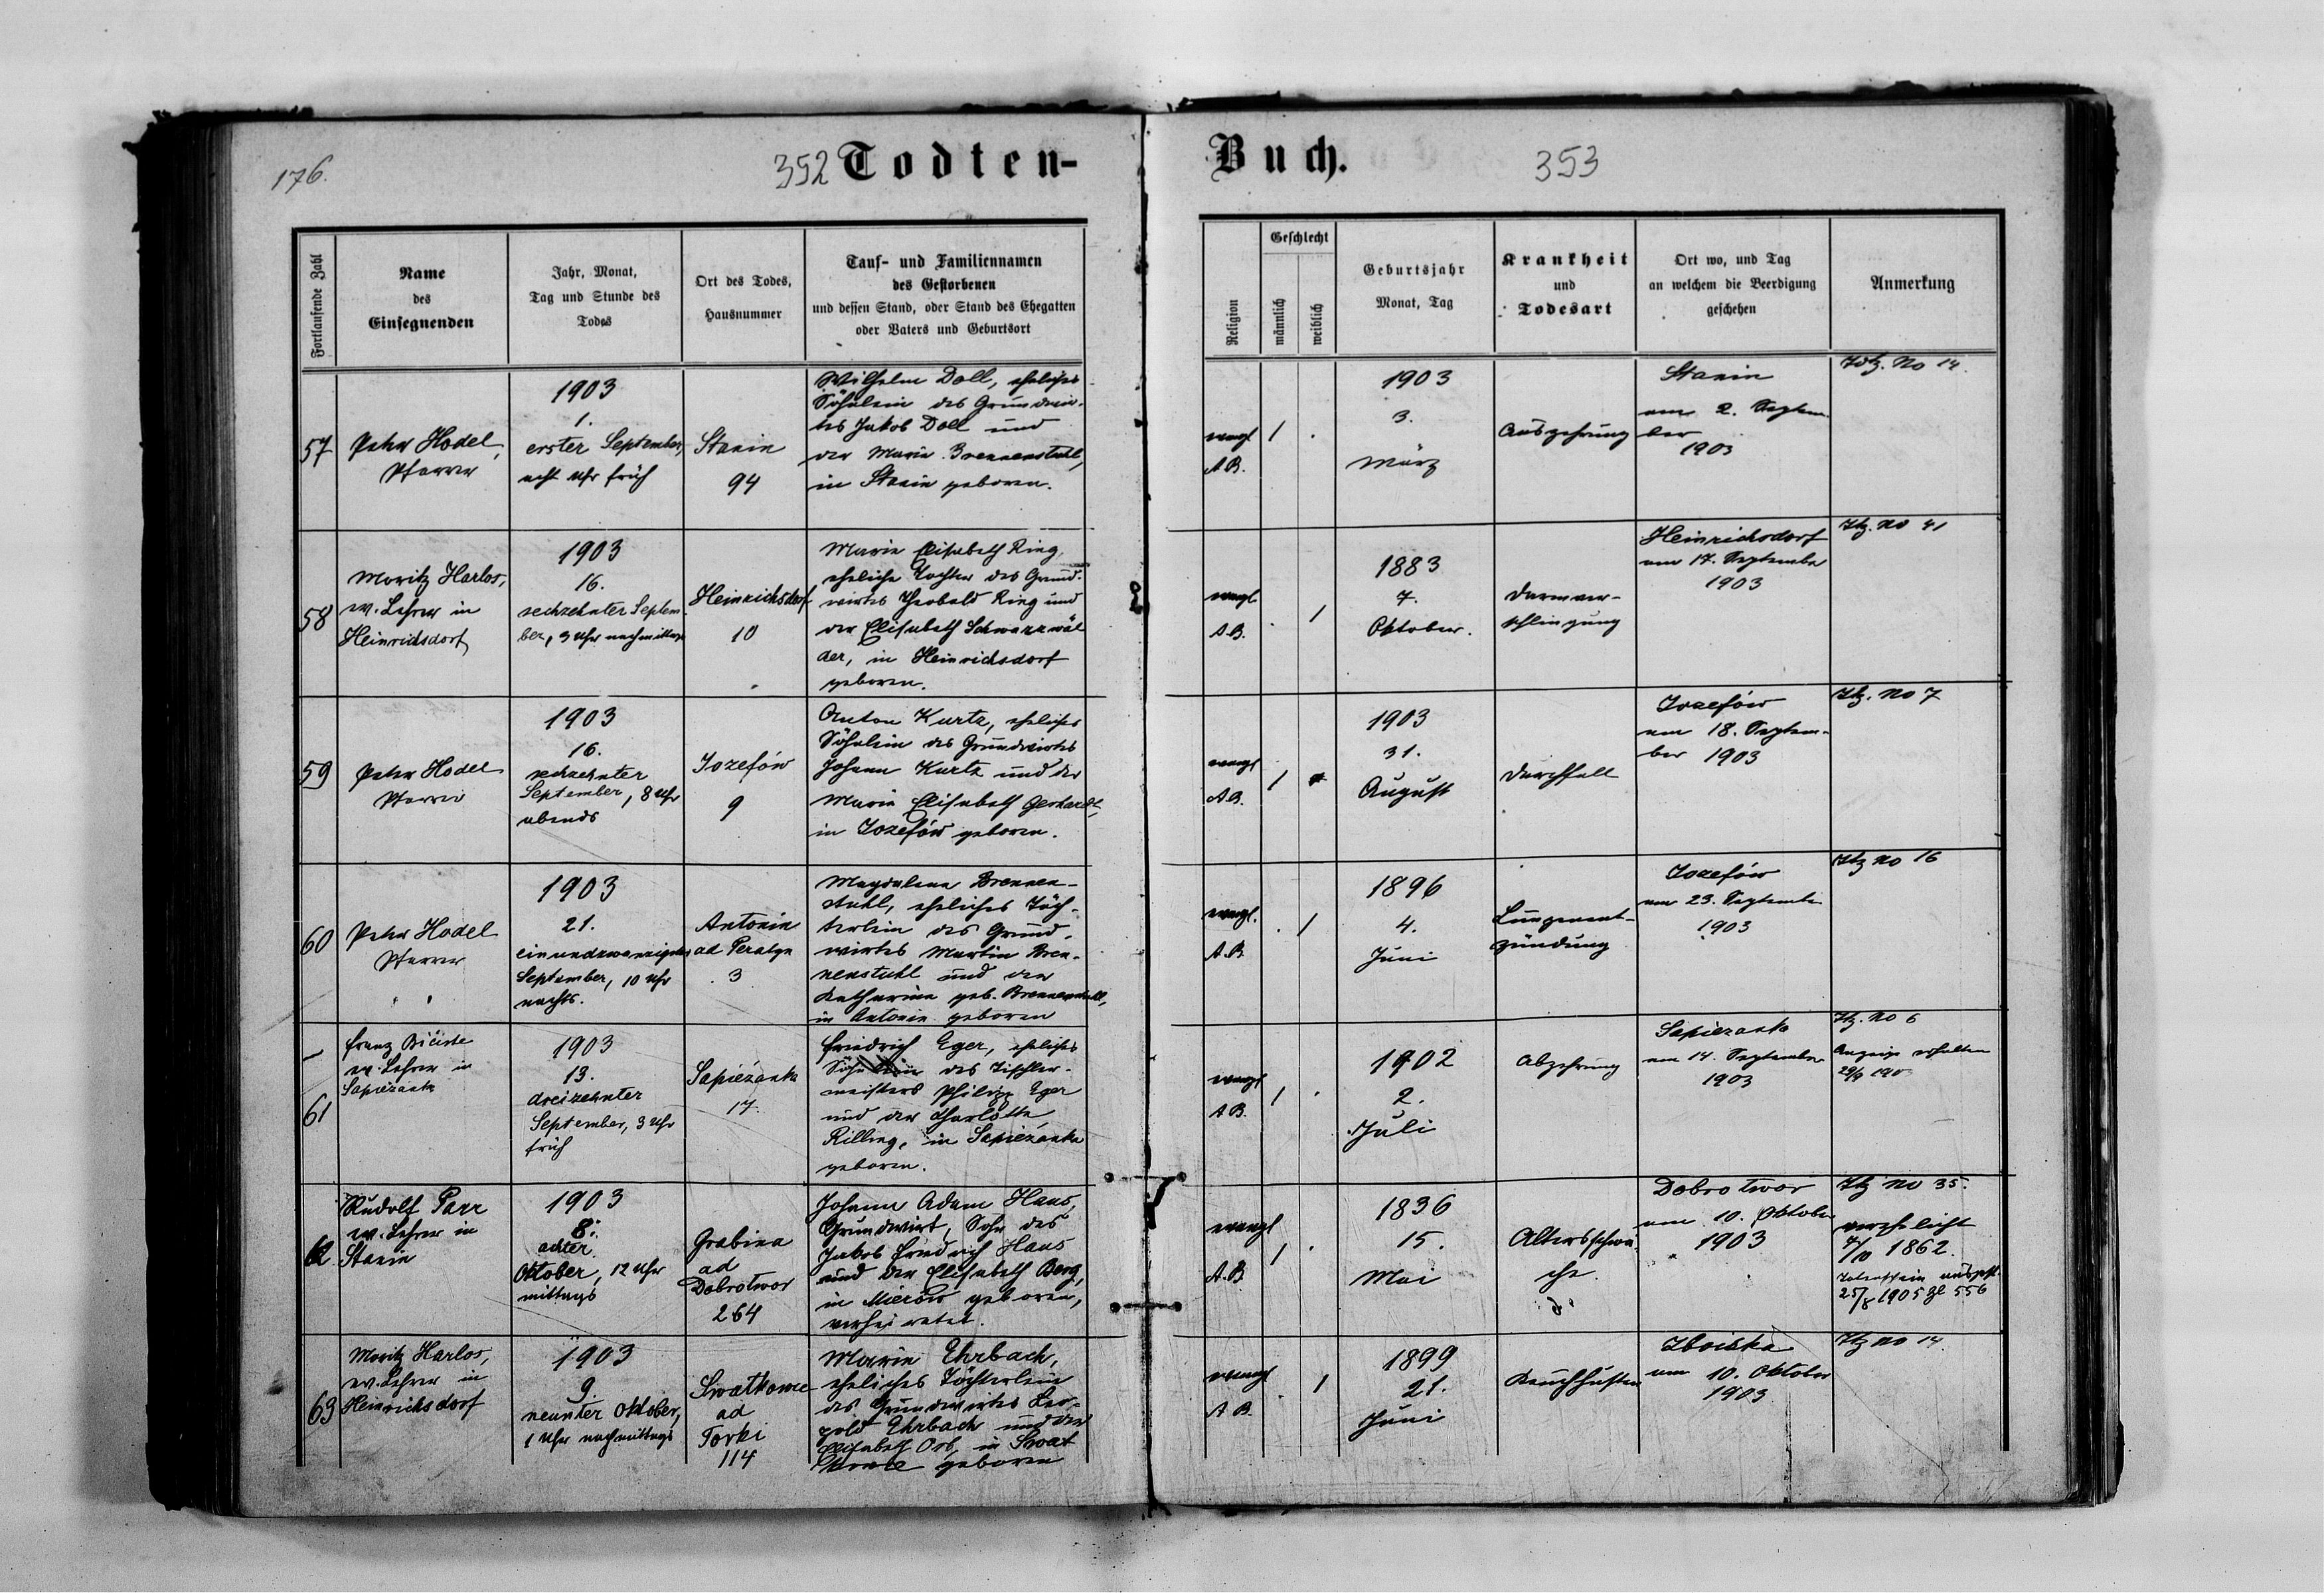 176.
352 Todten-
Buch. 353
Fortlaufende Zahl
Name
des
Einsegnenden
Jahr, Monat,
Tag und Stunde des
Todes
Ort des Todes,
Hausnummer
Tauf- und Familiennamen
des Gestorbenen
und dessen Stand, oder Stand des Ehegatten
oder Vaters und Geburtsort
Religion
Geschlecht
männlich
weiblich
Geburtsjahr
Monat, Tag
Krankheit
und
Todesart
Ort wo, und Tag
an welchem die Beerdigung
geschehen
Anmerkung
57
Peter Hodel,
Pfarrer
1903
1.
erster September,
acht Uhr früh
Stanin
94
Wilhelm Doll, eheliches
Söhnlein des Grundwir-
tes Jakob Doll und
der Maria Brennenstuhl,
in Stanin geboren.
evangl
A.B.
1
1903
3.
März
Auszehrung
Stanin
am 2. Septem-
ber
1903
No 14.
58
Moritz Harlos,
ev. Lehrer in
Heinrichsdorf
1903
16.
sechzehnter Septem-
ber, 3 Uhr nachmittags
Heinrichsdorf
10
Maria Elisabeth Ring,
eheliche Tochter des Grund-
wirtes Theobald Ring und
der Elisabeth Schwarzwäl
der, in Heinrichsdorf
geboren.
evangl.
A.B.
1
1883
7.
Oktober.
Darmver-
schlingung
Heinrichsdorf
am 17. September
1903
Itz. No 41
59
Peter Hodel
Pfarrer
1903
16.
sechzehnter
September, 8 Uhr
abends
Jozefów
9
Anton Kurtz, eheliches
Söhnlein des Grundwirtes
Johann Kurtz und der
Maria Elisabeth Gerhardt,
in Jozefów geboren.
evangl
A.B.
1
1903
31.
August
Durchfall
Jozefów
am 18. Septem-
ber 1903
Itz. No 7
60
Peter Hodel
Pfarrer
1903
21.
einundzwanzigster
September, 10 Uhr
nachts.
Antonin
ad Peratyn
3
Magdalena Brennen-
stuhl, eheliches Töch-
terlein des Grund-
wirtes Martin Bren-
nenstuhl und der
Katharina geb. Brennenstuhl,
in Antonin geboren
evangl.
A.B.
1
1896
4.
Juni
Lungenent-
zündung
Jozefów
am 23. September
1903
Itz No 16
61
Franz
ev. Lehrer in
Sapiezanka
1903
13.
dreizehnter
September, 3 Uhr
früh
Sapiezanka
17.
Friedrich Eger, eheliches
des Tischler-
meisters Philipp Eger
und der Charlotta
Rilling, in Sapiezanka
geboren.
evangl
A.B.
1
1902
2.
Juli
Abzehrung
Sapiezanka
am 14. September
1903
Itz. No 6
Anzeige erhalten
62
Rudolf Parr
ev. Lehrer in
Stanin
1903
8.
achter
Oktober, 12 Uhr
mittags
Grabina
ad
Dobrotwor
264
Johann Adam Haus,
Grundwirt, Sohn des
Jakob Friedrich Haus
und der Elisabeth Berg,
in Mierów geboren,
verheiratet.
evangl
A.B.
1
1836
15.
Mai
Altersschwä-
che.
Dobrotwor
am 10. Oktober
1903
Itz No 35.
verehelicht
1862.
Totenschein ausgest.
25/8 1905 Zl 556
63
Moritz Harlos,
ev. Lehrer in
Heinrichsdorf
1903
9.
neunter Oktober,
1 Uhr nachmittags
Swatkowce
ad
Torki
114
Maria Ehrbach,
eheliches Töchterlein
des Grundwirtes Leo-
pold Ehrbach und der
Elisabeth Orb, in Swat
kowce geboren
evangl
A.B.
1
1899
21.
Juni
Keuchhusten
Zboiska
am 10. Oktober
1903
Itz No 14.